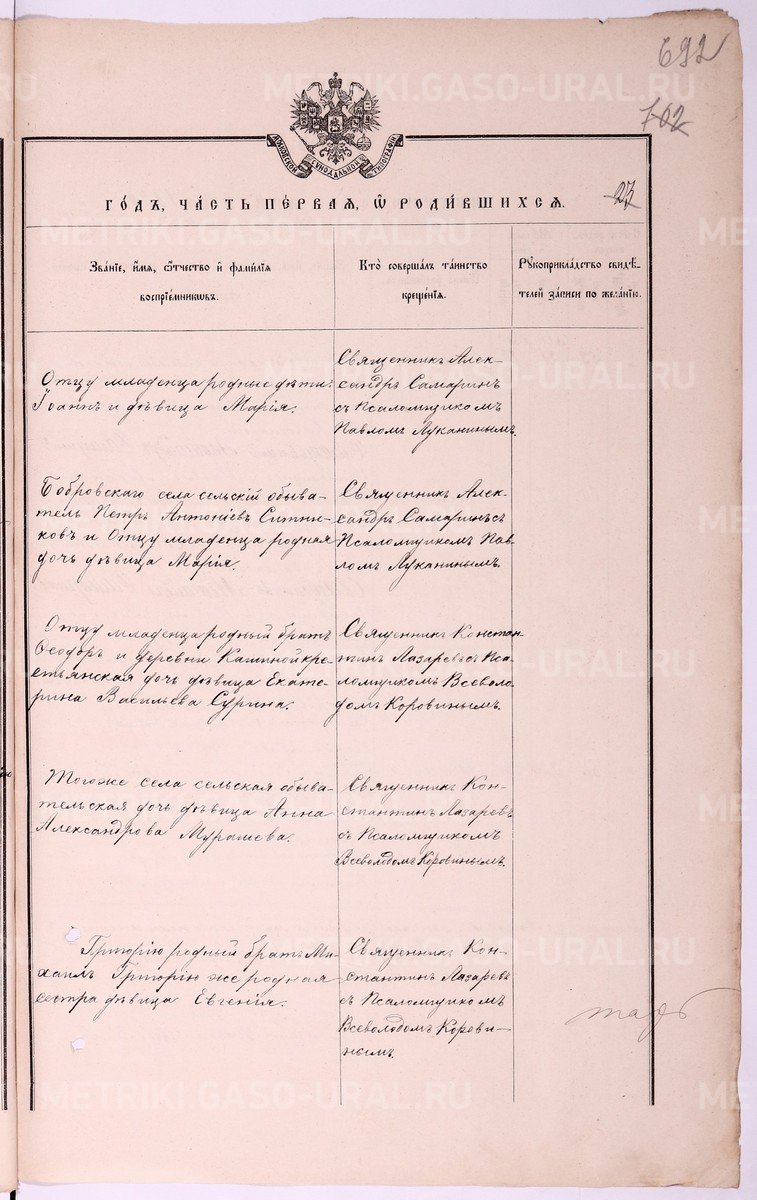 692
METRIKI.GASO-URAL.RU
102
МОСКОВСКОЙ СУНОДАЛЬНОЙ ТИПОГРАФІИ
23
ГО́ДЪ, ЧА́СТЬ ПЕ́РВАЯ, Ѡ҆ РОДИ́ВШИХСЯ.
Зва́ніе, и҆́мя, ѻ҆́тчество и҆ фами́лія
воспріе́мникѡвъ.
Кто̀ соверша́лъ та́инство
креще́нія.
Рꙋкоприкла́дство свидѣ́-
телей за́писи по жела́нію.
Отцу младенца родные дѣти
Іоаннъ и дѣвица Марія.
Священникъ Алек-
сандръ Самаринъ
съ Псаломщикомъ
Павломъ Луканинымъ.
Бобровскаго села сельскій обыва-
тель Петръ Антоніевъ Ситни-
ковъ и Отцу младенца родная
дочь дѣвица Марія.
Священникъ Алек-
сандръ Самаринъ съ
Псаломщикомъ Пав-
ломъ Луканинымъ.
Отцу младенца родный братъ
Ѳеодоръ и деревни Кашиной кре-
стьянская дочь дѣвица Екате-
рина Васильева Сурина.
Священникъ Констан
тинъ Лазаревъ съ Пса-
ломщикомъ Всеволо-
домъ Коровинымъ.
Тогоже села сельская обыва-
тельская дочь дѣвица Анна
Александрова Мурашева.
Священникъ Кон-
стантинъ Лазаревъ
съ Псаломщикомъ
Всеволодомъ Коровинымъ.
Григорію родный братъ Ми-
хаилъ Григорію же родная
сестра дѣвица Евгенія.
Священникъ Кон-
стантинъ Лазаревъ
съ Псаломщикомъ
Всеволодомъ Корови-
нымъ.
METRIKI.GASO-URAL.RU